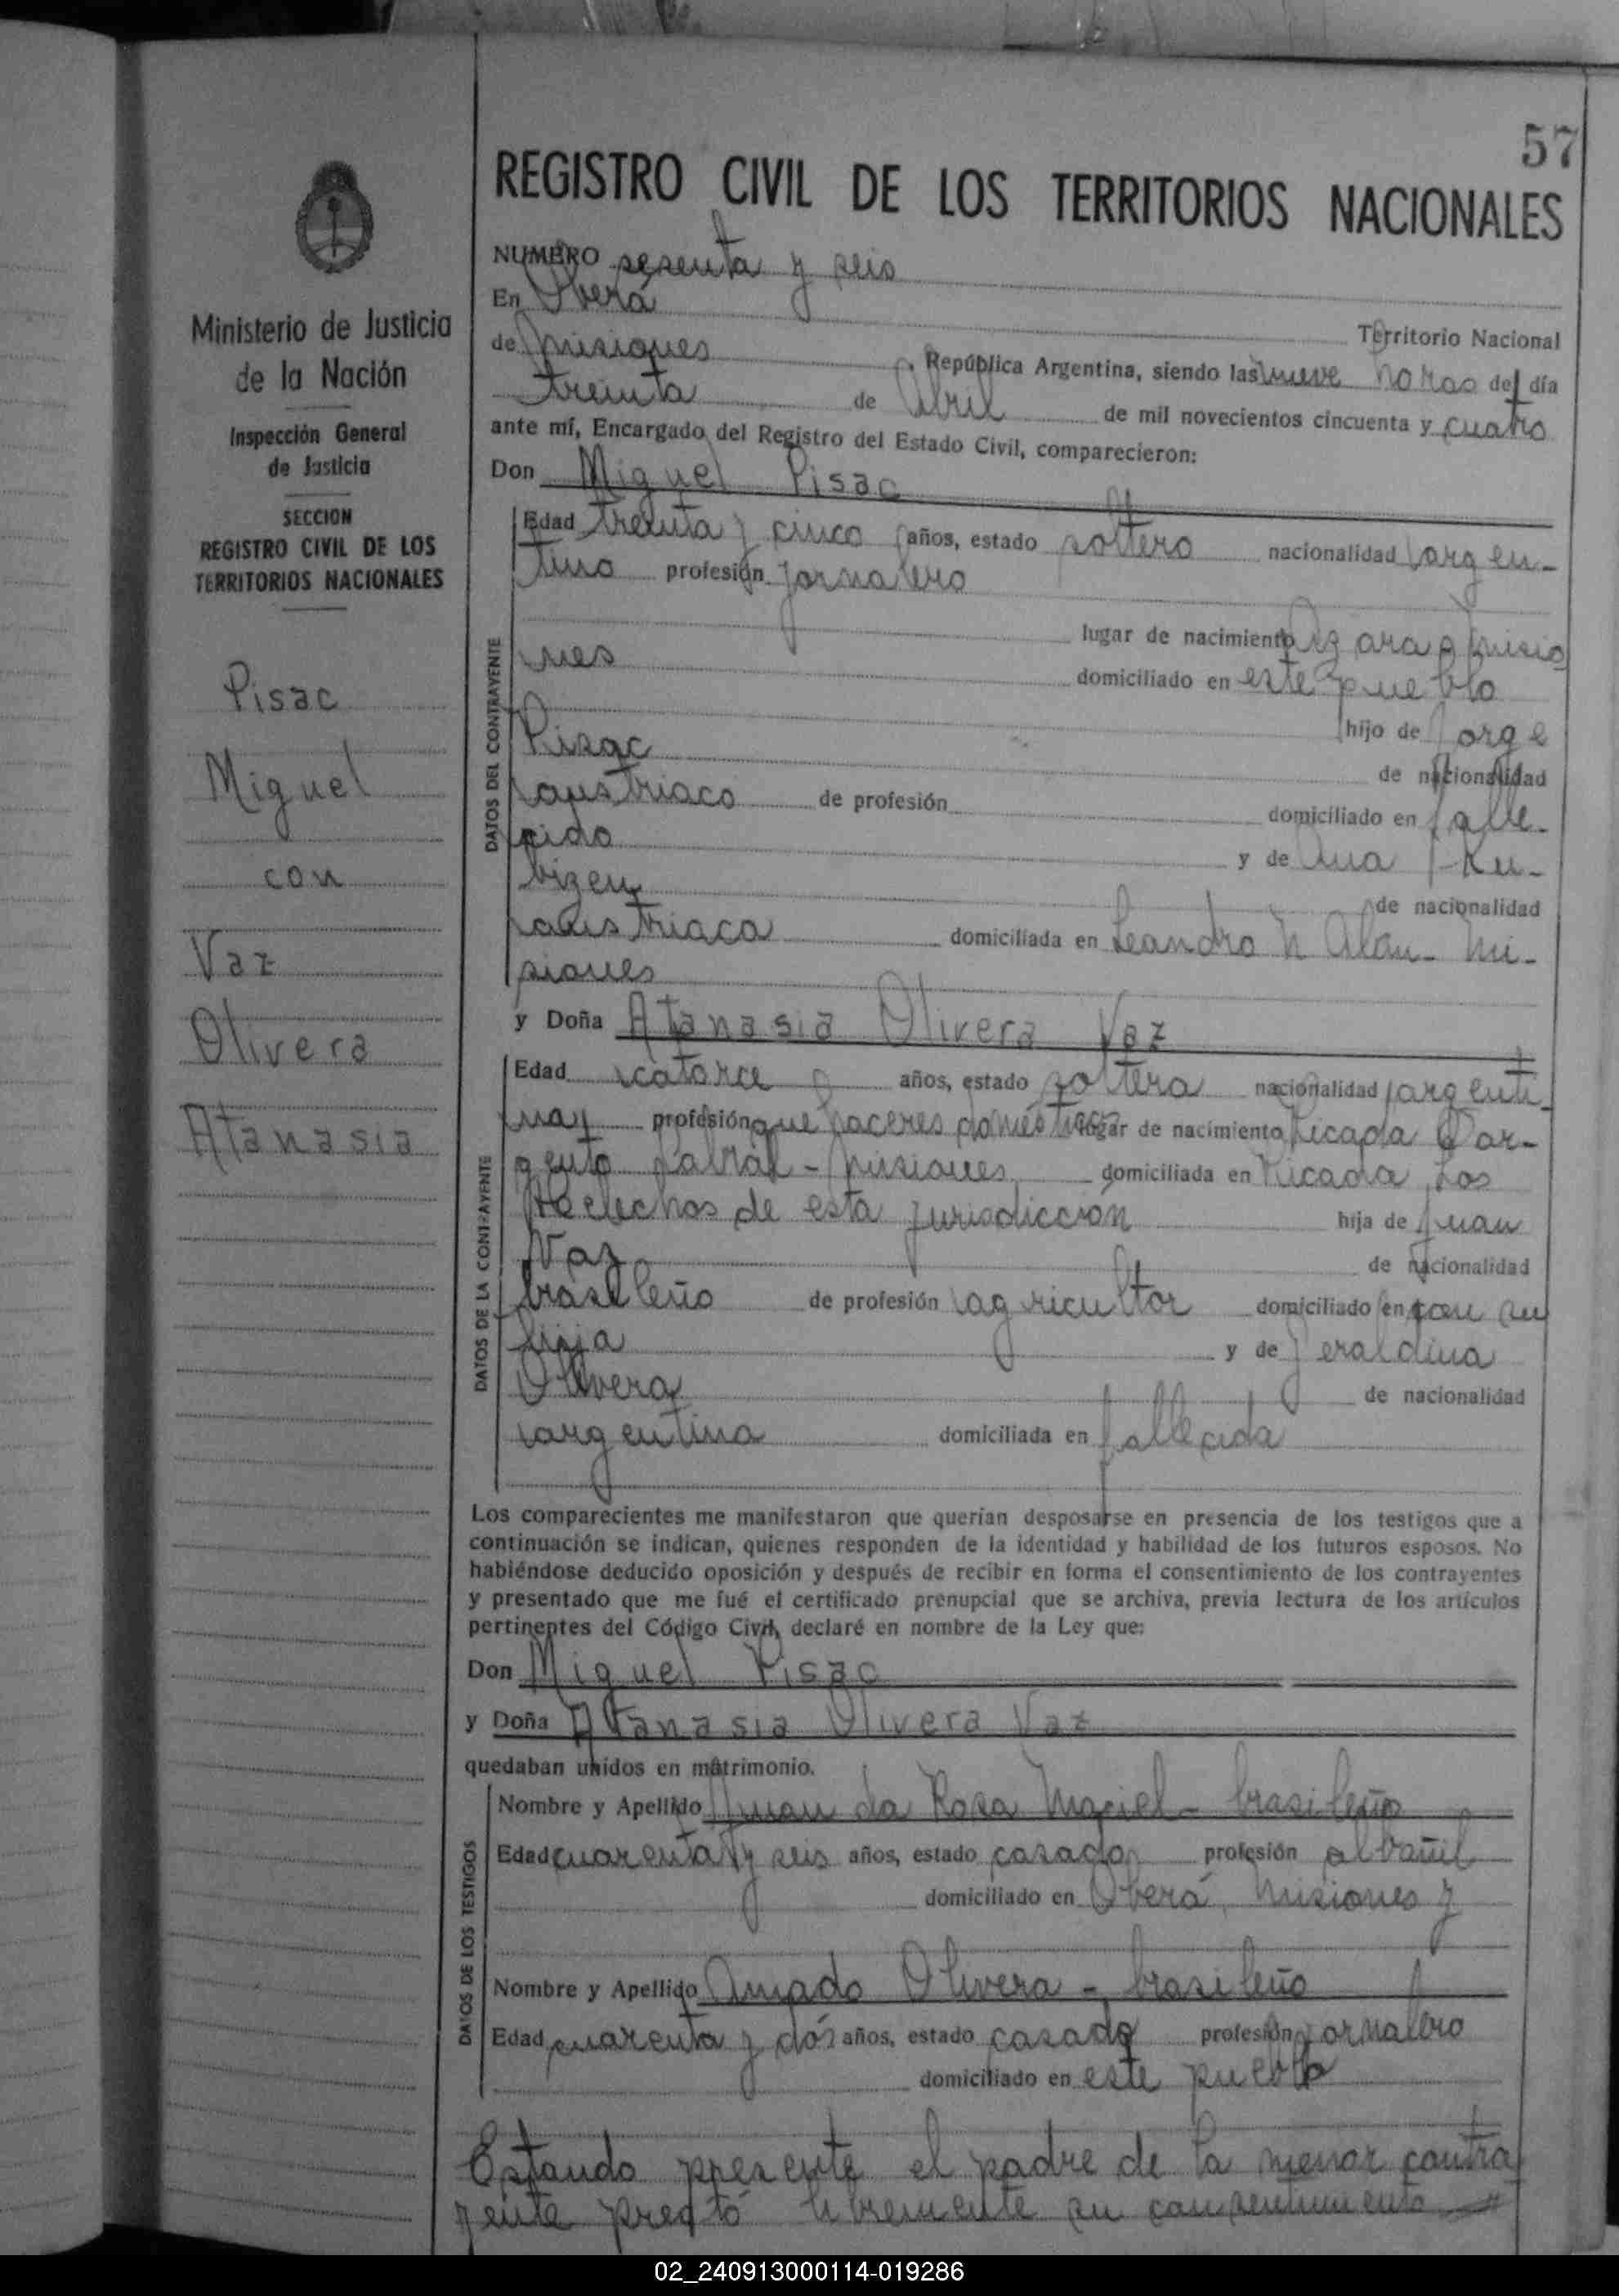 57
REGISTRO CIVIL DE LOS TERRITORIOS NACIONALES
Ministerio de Justicia
de la Nación
Inspección General
de Justicia
SECCION
REGISTRO CIVIL DE LOS
TERRITORIOS NACIONALES
Pisac
Miguel
con
Vaz
Olivera
Atanasia
NUMERO sesenta y seis
En Oberá
Territorio Nacional
de Misiones República Argentina, siendo las nueve horas del día
treinta de Abril de mil novecientos cincuenta y cuatro
ante mí, Encargado del Registro del Estado Civil, comparecieron:
Don Miguel Pisac
DATOS DEL CONTRAYENTE
Edad treinta y cinco años, estado soltero nacionalidad argen-
tino profesión jornalero
lugar de nacimiento Azara Misio
nes domiciliado en este pueblo
hijo de Jorge
Pisac de nacionalidad
austriaco de profesión domiciliado en falle-
cido y de Ana Ku-
bizen de nacionalidad
austriaca domiciliada en Leandro N Alem - Mi-
siones
y Doña Atanasia Olivera Vaz
DATOS DE LA CONTRAYENTE
Edad catorce años, estado soltera nacionalidad argenti
na profesión quehaceres domésticos lugar de nacimiento Picada Sar-
gento Cabral - Misiones domiciliada en Picada Los
Helechos de esta jurisdicción hija de Juan
Vaz de nacionalidad
brasileño de profesión agricultor domiciliado en con su
hija y de Jeraldina
Olivera de nacionalidad
argentina domiciliada en fallecida
Los comparecientes me manifestaron que querían desposarse en presencia de los testigos que a
continuación se indican, quienes responden de la identidad y habilidad de los futuros esposos. No
habiéndose deducido oposición y después de recibir en forma el consentimiento de los contrayentes
y presentado que me fué el certificado prenupcial que se archiva, previa lectura de los artículos
pertinentes del Código Civil, declaré en nombre de la Ley que:
Don Miguel Pisac
y Doña Atanasia Olivera Vaz
quedaban unidos en matrimonio.
DATOS DE LOS TESTIGOS
Nombre y Apellido Juan da Rosa Maciel - brasileño
Edad cuarenta y seis años, estado casado profesión albañil
domiciliado en Oberá, Misiones y
Nombre y Apellido Amado Olivera - brasileño
Edad cuarenta y dos años, estado casado profesión jornalero
domiciliado en este pueblo
Estando presente el padre de la menor contra
yente prestó libremente su consentimiento
02_240913000114-019286